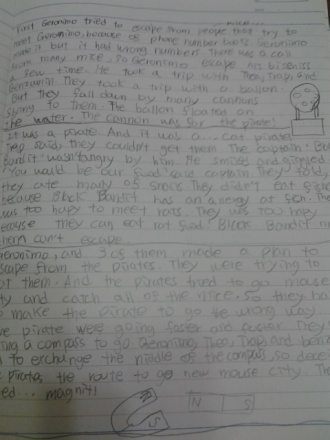 First Geronimo tried to escape from people that try to
meet Geronimo, because of phone number book. Geronimo
made it but it had wrong numbers. There was a call
from many mice. So Geronimo escape his
a few time. He took a trip with Thea, Trap, and
Benjamin. They took a trip with a balloon.
But they fall down by many cannons
to them. The balloon floated on
the water. The cannon was for the pirate!
It was a pirate. And it was a... cat pirate!
Trap said, they couldn't get them. The captain! Black
Bandit wasn't angry by him. He smiled and
You would be our food said captain. They told,
they ate many of snack. They didn't eat
because Black Bandit has an allergy at
was too happy to meet
because They can eat not food. Black Bandit
them can't escape.
Geronimo, and 3 of them made a plan to
scape from the pirates. They were trying to
t them. And the pirates tried to go mouse
ty and catch all of the mice. So they
make the pirate to go the wrong way.
pirate were going faster and faster. They
ing a compass to go. Geronimo, Thea, Trap and
to exchange the needle of the compass, so
pirates, the route to go new mouse city. The
ed... magnit!
N S
N S